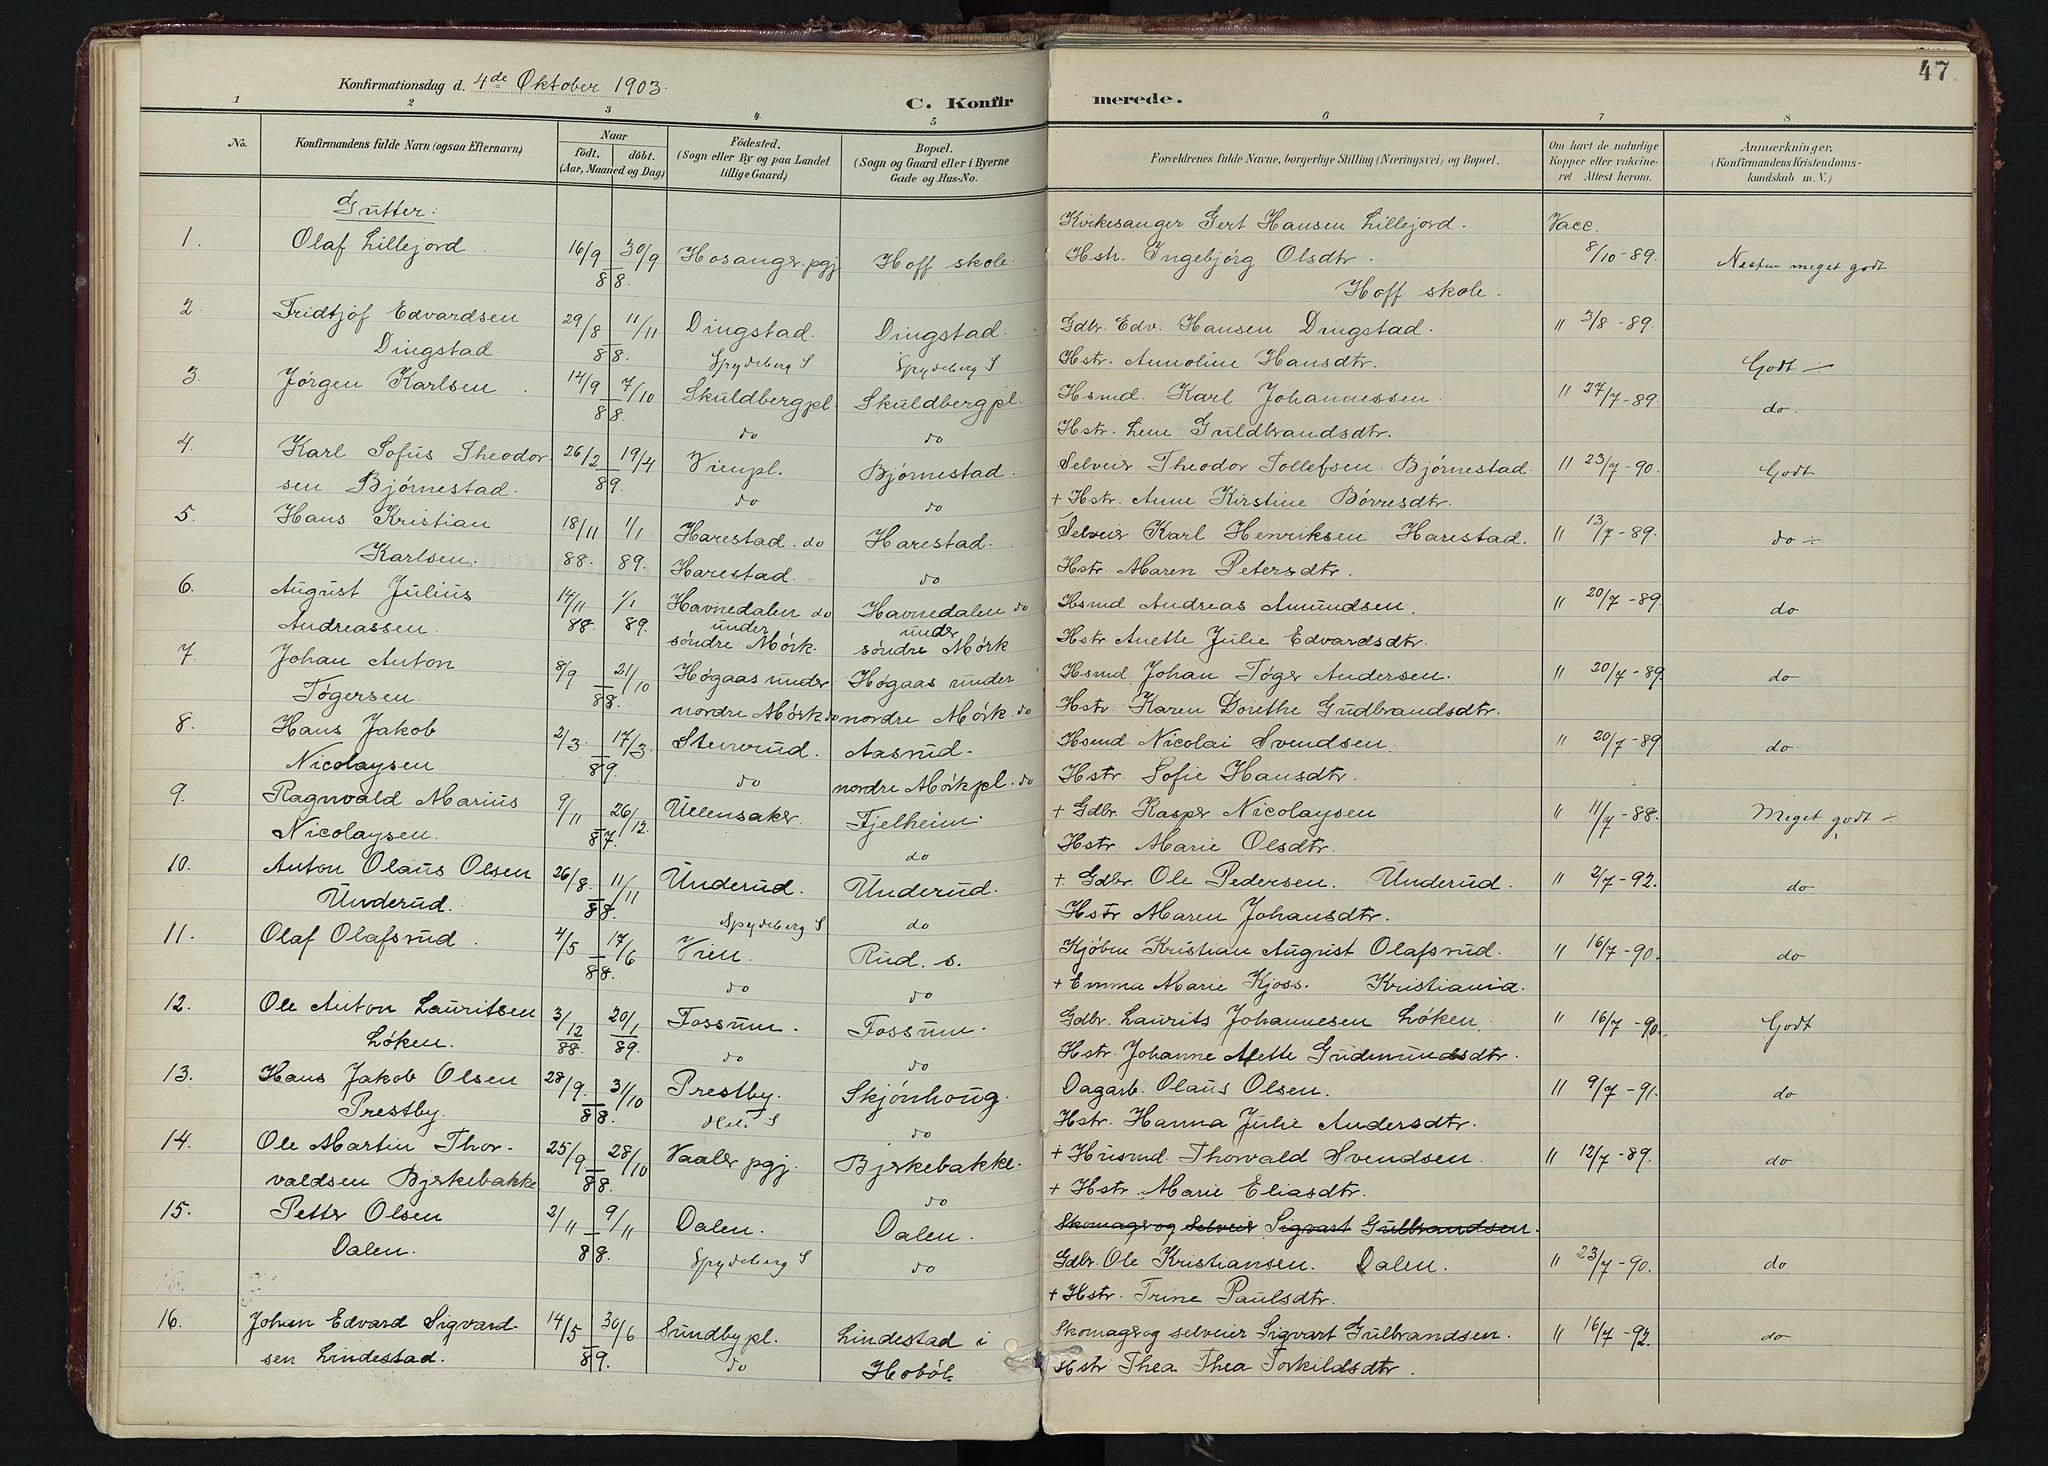 47
Konfirmationsdag d. 4de Oktober 1903.
C. Konfirmerede.
1 2 3 4 5 6 7 8
No.
Konfirmandens fulde Navn (ogsaa Efternavn)
Naar
födt. döbt.
(Aar, Maaned og Dag)
Födested.
(Sogn eller By og paa Landet
tillige Gaard)
Bopæl.
(Sogn og Gaard eller i Byerne
Gade og Hus-No.
Forældrenes fulde Navne, borgerlige Stilling (Næringsvei) og Bopæl.
Om havt de naturlige
Kopper eller vakcine-
ret Attest herom.
Anmærkninger,
(Konfirmandens Kristendoms-
kundskab m. V.)
Gutter:
1. Olaf Lillejord 16/9 30/9 Hosanger pgj. Hoff skole. Kirkesanger Gert Hansen Lillejord. Vacc.
88. Hstr. Ingebjörg Olsdtr. 8/10-89. Næsten meget godt
Hoff skole.
2. Fridtjof Edvardsen 29/8 11/11 Dingstad. Dingstad. Gdbr. Edv. Hansen Dingstad. " 3/8-89.
Dingstad. 88. Spydeberg S Spydeberg S Hstr. Annoline Hansdtr. Godt ÷
3. Jørgen Karlsen 14/9 7/10 Skuldbergpl. Skuldbergpl. Hsmd. Karl Johannessen " 27/7-89. do.
88. do do Hstr. Lene Guldbrandsdtr.
4. Karl Sofus Theodor- 26/2 19/4 Vienpl. Bjørnestad. Selveier Theodor Tollefsen Bjørnestad. " 23/7-90. Godt
sen Bjørnestad. 89. do do + Hstr. Anne Kirstine Börresdtr.
5. Hans Kristian 18/11 1/1 Harestad. do Harestad. Selveier Karl Henriksen Harestad. " 13/7-89. do ÷
Karlsen. 88. 89. Harestad. do Hstr. Maren Petersdtr.
6. August Julius 14/11 1/1 Havnedalen do Havnedalen do Hsmd. Andreas Amundsen. " 20/7-89. do
Andreassen. 88. 89. under søndre Mørk. under søndre Mørk Hstr. Anette Julie Edvardsdtr.
7. Johan Anton 8/9 21/10 Høgaas under Høgaas under Hsmd. Johan Tøger Andersen. " 20/7-89 do
Tøgersen. 88. nordre Mørk. do nordre Mørk. do Hstr. Karen Dorethe Gudbrandsdtr.
8. Hans Jakob 2/3. 17/3. Stenerud. Aasrud- Hsmd. Nicolai Svendsen " 20/7-89 do
Nicolaysen 89. do nordre Mørkpl. do Hstr. Sofie Hansdtr.
9. Ragnvald Marius 9/11 26/12. Ullensaker. Fjelheim. + Gdbr. Kasper Nicolaysen " 11/7-88. Meget godt ÷
Nicolaysen. 87. do Hstr. Marie Olsdtr.
10. Anton Olaus Olsen 26/8. 11/11 Underud. Underud. + Gdbr. Ole Pedersen. Underud. " 2/7-92. do
Underud. 88. Spydeberg S do Hstr Maren Johansdtr.
11. Olaf Olafsrud. 4/5 17/6 Vien. Rud. s. Kjöbm Kristian August Olafsrud. " 16/7-90. do
88. do do + Emma Marie Kjoss. Kristiania.
12. Ole Anton Lauritsen 3/12 20/1 Fossum. Fossum. Gdbr. Laurits Johannesen Løken. " 16/7-90. Godt
Løken. 88. 89. do do Hstr. Johanne Mette Gudmundsdtr.
13. Hans Jakob Olsen 28/9. 31/10 Prestby. Skjønhoug. Dagarb. Olaus Olsen. " 9/7-91. do
Prestby. 88. Heli S do Hstr. Hanna Julie Andersdtr.
14. Ole Martin Thor- 25/9 28/10 Vaaler pgj. Bjerkebakke. + Husmd. Thorvald Svendsen. " 12/7-89. do
valdsen Bjerkebakke 88. do + Hstr. Marie Eliasdtr.
15. Petter Olsen 2/11 9/11 Dalen. Dalen. Skomager og selveier Sigvart Gulbrandsen.
Dalen. 88. Spydeberg S do Gdbr. Ole Kristiansen. Dalen. " 23/7-90. do
+ Hstr. Trine Paulsdtr.
16. Johan Edvard Sigvard- 14/5 30/6 Sundbypl. Lindestad i Skomager og selveier Sigvart Gulbrandsen. " 16/7-92. do
sen Lindestad. 89. do Hobøl. Hstr Thea Thea Torkildsdtr.